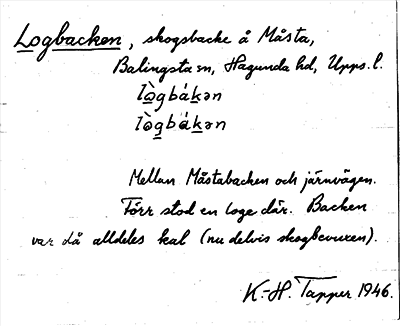 Logbacken, skogsbacke å Måsta,
Balingsta sn, Hagunda hd, Upps. l.
lògbákən
lògbákən
Mellan Måstabacken och järnvägen.
Förr stod en loge där. Backen
var då alldeles kal (nu delvis skogbevuxen).
K.-H. Tapper 1946.